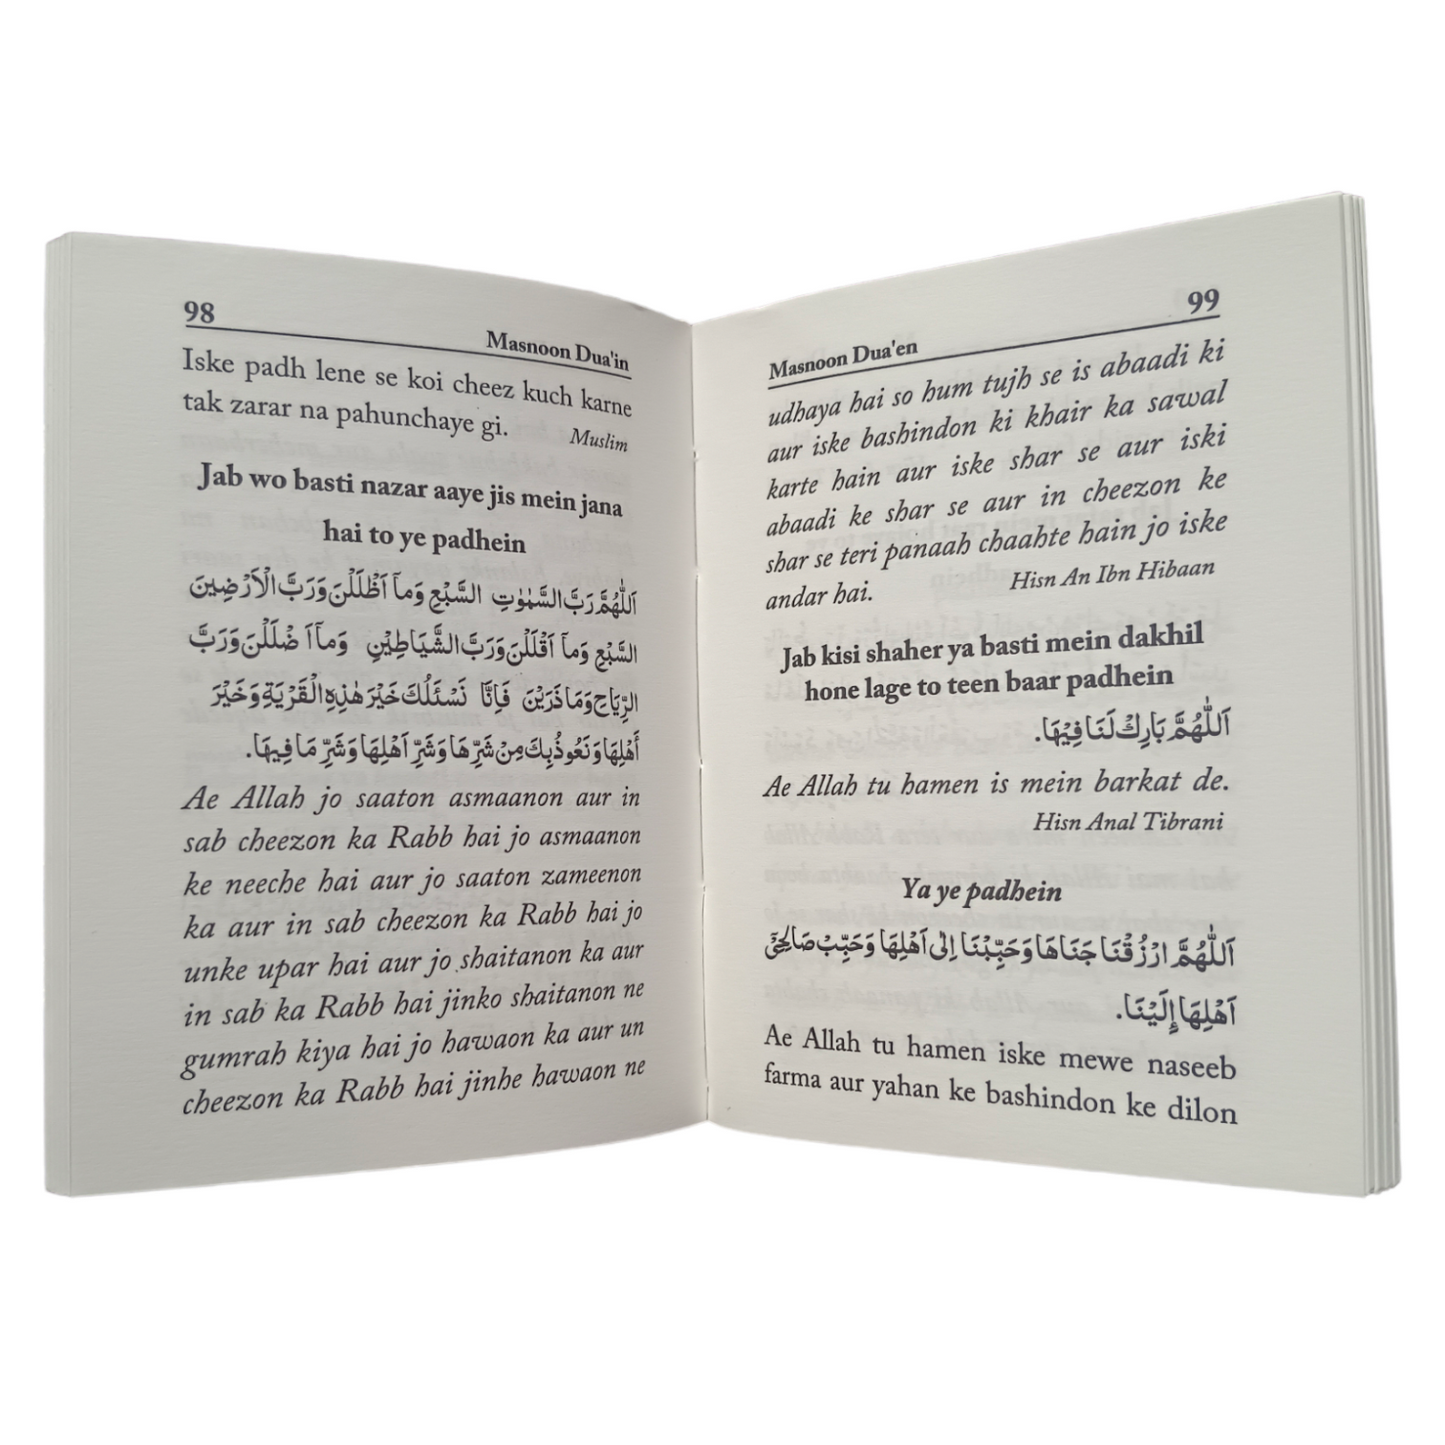 98
Masnoon Dua'in
Iske padh lene se koi cheez kuch karne
tak zarar na pahunchaye gi.
Muslim
Jab wo basti nazar aaye jis mein jana
hai to ye padhein
اَللّٰهُمَّ رَبَّ السَّمٰوٰتِ السَّبْعِ وَمَآ اَظْلَلْنَ وَرَبَّ الْاَرْضِيْنَ
السَّبْعِ وَمَآ اَقْلَلْنَ وَرَبَّ الشَّيَاطِيْنِ وَمَآ اَ ضْلَلْنَ وَرَبَّ
الرِّيَاحِ وَمَا ذَرَيْنَ فَاِنَّا نَسْئَلُكَ خَيْرَ هٰذِهِ الْقَرْيَةِ وَخَيْرَ
أَهْلِهَا وَنَعُوذُ بِكَ مِنْ شَرِّهَا وَشَرِّ اَهْلِهَا وَشَرِّ مَا فِيهَا.
Ae Allah jo saaton asmaanon aur in
sab cheezon ka Rabb hai jo asmaanon
ke neeche hai aur jo saaton zameenon
ka aur in sab cheezon ka Rabb hai jo
unke upar hai aur jo shaitanon ka aur
in sab ka Rabb hai jinko shaitanon ne
gumrah kiya hai jo hawaon ka aur un
cheezon ka Rabb hai jinhe hawaon ne
99
Masnoon Dua'en
udhaya hai so hum tujh se is abaadi ki
aur iske bashindon ki khair ka sawal
karte hain aur iske shar se aur iski
abaadi ke shar se aur in cheezon ke
shar se teri panaah chaahte hain jo iske
andar hai.
Hisn An Ibn Hibaan
Jab kisi shaher ya basti mein dakhil
hone lage to teen baar padhein
اَللّٰهُمَّ بَارِكْ لَنَا فِيْهَا.
Ae Allah tu hamen is mein barkat de.
Hisn Anal Tibrani
Ya ye padhein
اَللّٰهُمَّ ارْزُقْنَا جَنَاهَا وَحَبِّبْنَا اِلٰى اَهْلِهَا وَحَبِّبْ صَالِحِيْ
اَهْلِهَا إِلَيْنَا.
Ae Allah tu hamen iske mewe naseeb
farma aur yahan ke bashindon ke dilon